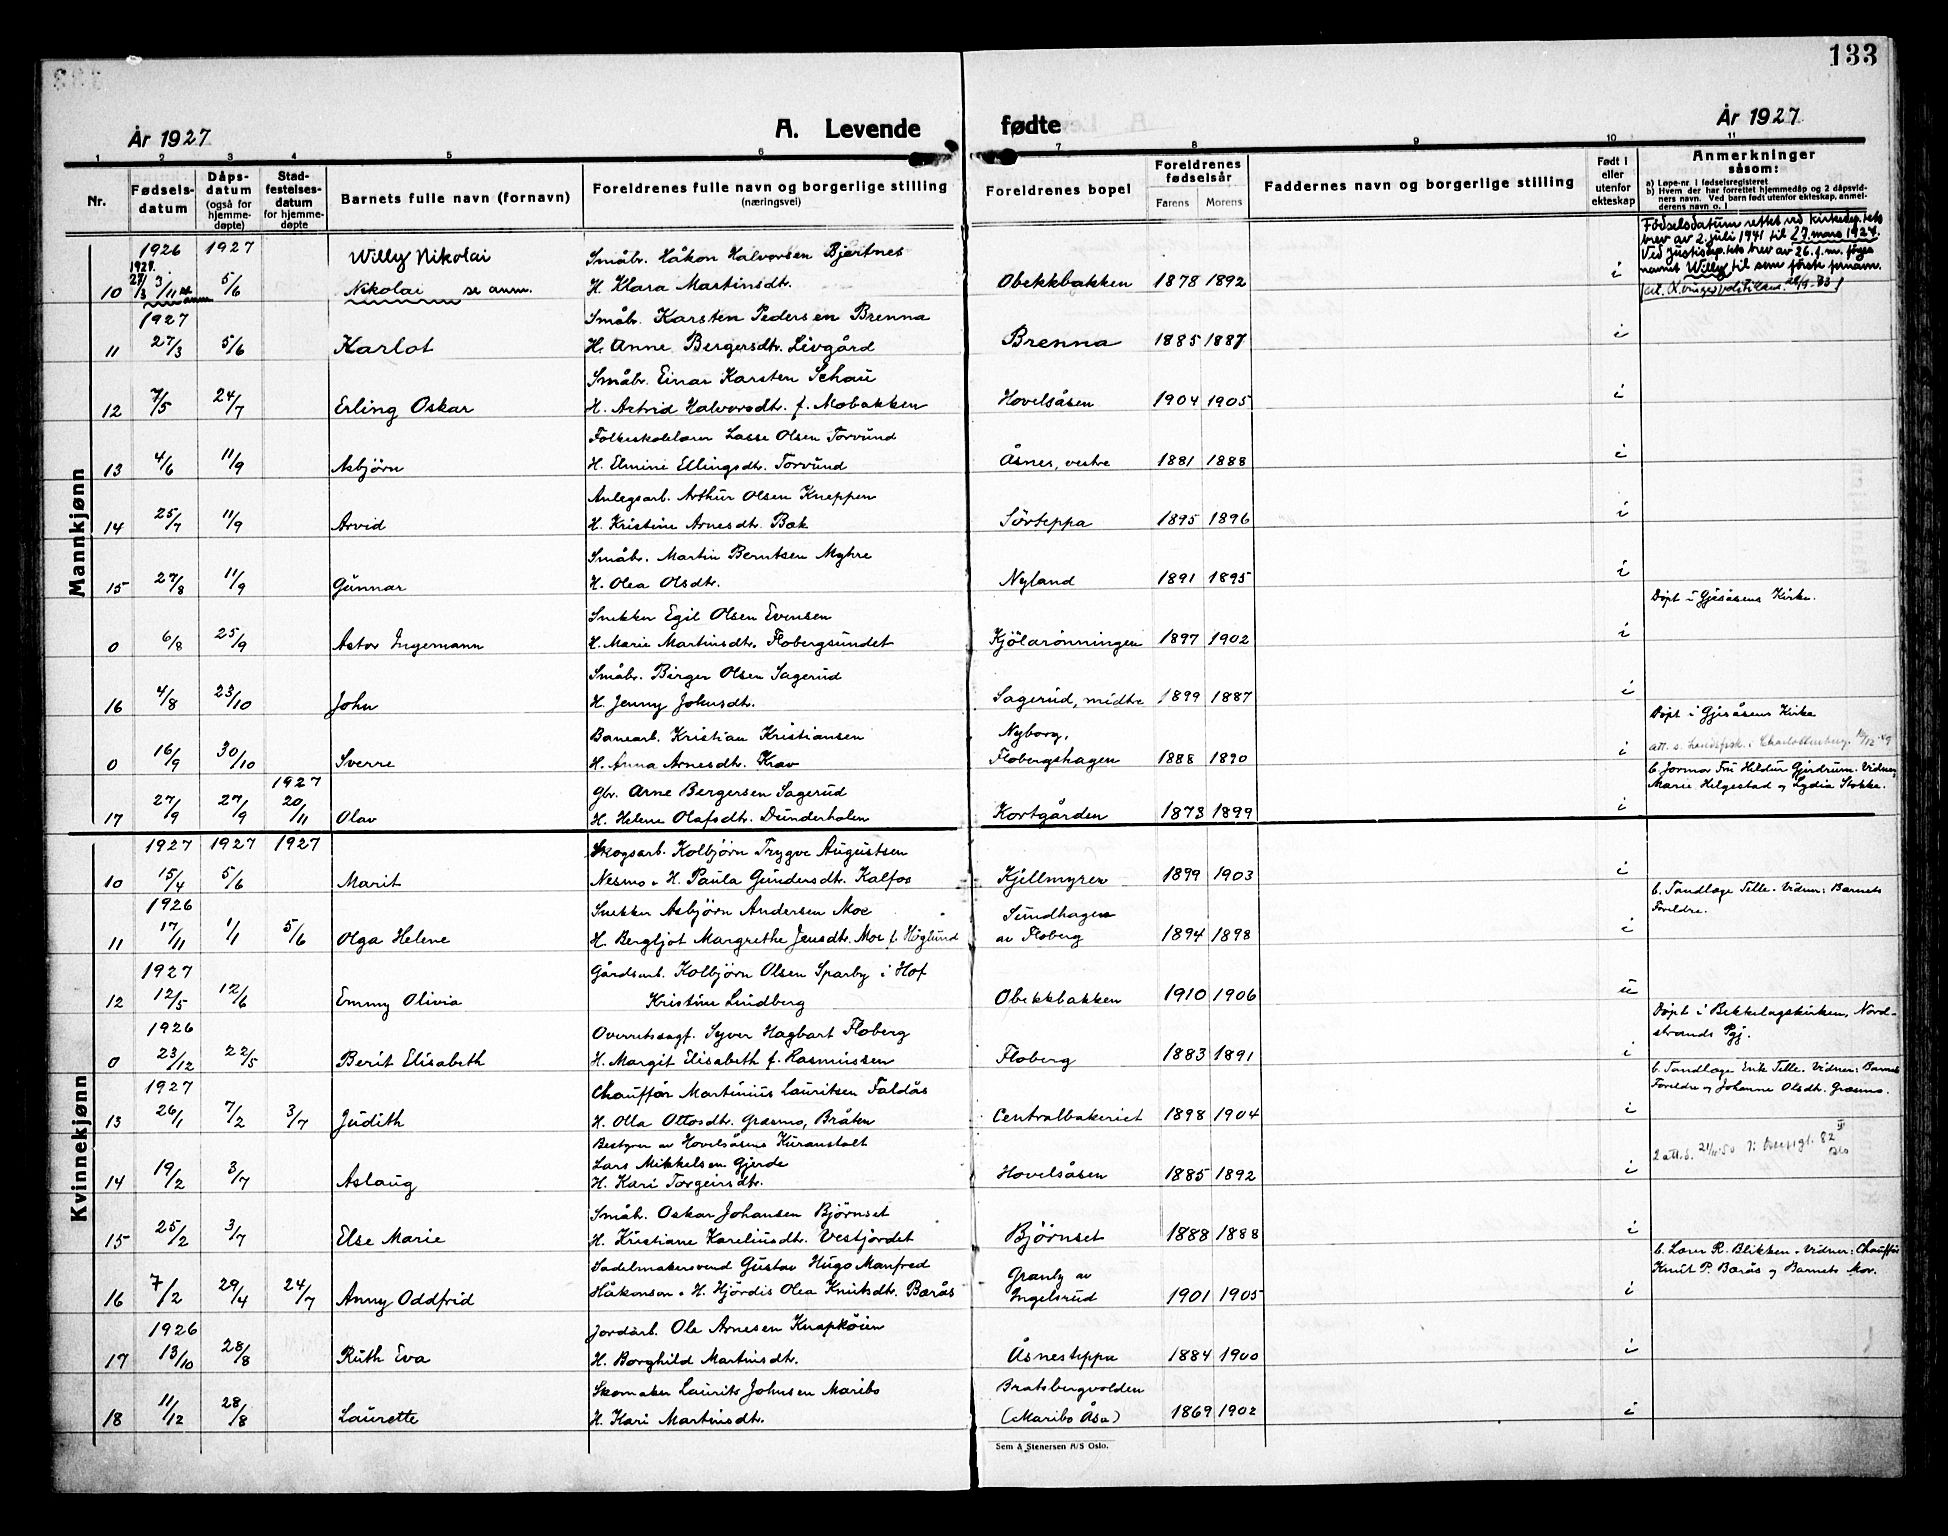 133
År 1927
A. Levende fødte
År 1927
1 2 3 4 5 6 7 8 9 10 11
Nr. Fødsels-datum Dåps-datum (også for hjemme-døpte) Stad-festelses-datum for hjemme-døpte Barnets fulle navn (fornavn) Foreldrenes fulle navn og borgerlige stilling (næringsvei) Foreldrenes bopel Foreldrenes fødselsår Farens Morens Faddernes navn og borgerlige stilling Født i eller utenfor ekteskap Anmerkninger såsom: a) Løpe-nr. i fødselsregisteret b) Hvem der har forrettet hjemmedåp og 2 dåpsvidners navn. Ved barn født utenfor ekteskap, anmelderens navn o. l.
Mannkjønn
1926 1927 Willy Nikolai Småbr. Håkon Halvorsen Bjertnes
10 1927. 27/3 3/11 se anm 5/6 Nikolai se anm. H. Klara Martinsdt. Obekkbakken 1878 1892 i
Fødselsdatum rettet ved Kirkedep.tets
brev av 2. juli 1941 til 27. mars 1927.
Ved Justisdep.tets brev av 26. f. m. føyes
navnet Willy til som første fornavn.
1927 Småbr. Karsten Pedersen Brenna
11 27/3 5/6 Karlot H. Anne Bergersdtr. Livgård Brenna 1885 1887 i
Småbr. Einar Karsten Schau
12 7/5 24/7 Erling Oskar H. Astrid Halvorsdt. f. Mobakken Hovelsåsen 1904 1905 i
Folkeskolelærer Lasse Olsen Torvund
13 4/6 11/9 Asbjörn H. Elmine Ellingsdt. Torvund Åsnes, vestre 1881 1888 i
Anlegsarb. Arthur Olsen Kneppen
14 25/7 11/9 Arvid H. Kristine Arnesdt. Bak Sörteppa 1895 1896 i
Småbr. Martin Berntsen Myhre
15 27/8 11/9 Gunnar H. Olea Olsdtr. Nyland 1891 1895 i
Snekker Egil Olsen Evensen Döpt i Gjesåsens Kirke.
0 6/8 25/9 Astor Ingemann H. Marie Martinsdt. Flobergsundet Kjölarönningen 1897 1902 i
Småbr. Birger Olsen Sagerud
16 4/8 23/10 John H. Jenny Johnsdt. Sagerud, midtre 1899 1887 i
Banearb. Kristian Kristiansen Nyborg, Döpt i Gjesåsens Kirke
0 16/9 30/10 Sverre H. Anna Arnesdt. Krav Flobergshagen 1888 1890 i
1927 Gbr. Arne Bergersen Sagerud b. Jormor Fru Hildur Gjerdrum. Vidner
17 27/9 27/9 20/11 Olav H. Helene Olafsdt. Dunderholen Kortgården 1873 1899 i Marie Helgestad og Lydia Stokke.
Kvinnekjønn
1927 1927 1927 Skogsarb. Kolbjörn Trygve Augustsen
10 15/4 5/6 Marit Nesmo. H. Paula Gundersdt. Kalfos Kjellmyren 1899 1903 i
1926 Snekker Asbjörn Andersen Moe Sundhagen b. Tandlæge Tille. Vidner: Barnets Foreldre.
11 17/11 1/1 5/6 Olga Helene H. Bergljot Margrethe Jensdt. Moe f. Höglund av Floberg 1894 1898 i
1927 Gårdsarb. Kolbjörn Olsen Sparby i Hof
12 12/5 12/6 Emmy Olivia Kristine Lindberg Obekkbakken 1910 1906 u
1926 Overretssagf. Syver Hagbart Floberg Döpt i Bekkelagskirken, Nordstrands Pgj.
0 23/12 22/5 Berit Elisabeth H. Margit Elisabeth f. Rasmussen Floberg 1883 1891 i
1927 Chauffør Martinius Lauritsen Faldås b. Tandlæge Erik Tille. Vidner: Barnets
13 26/1 7/2 3/7 Judith H. Olla Ottosdt. Græsmo, Bråten Centralbakeriet 1898 1904 i Foreldre og Johanne Olsdt. Græsmo.
Bestyrer av Hovelsåsens Kuranstalt
Lars Mikkelsen Gjerde
14 19/2 3/7 Aslaug H. Kari Torgeirsdtr. Hovelsåsen 1885 1892 i
Småbr. Oskar Johansen Björnset
15 25/2 3/7 Else Marie H. Kristiane Kareliusdt. Vestjordet Björnset 1888 1888 i
Sadelmakersvend Gustav Hugo Manfred Granly av b. Lærer R. Blikken. Vidner: Chauffør
16 7/2 29/4 24/7 Anny Oddfrid Håkonson. H. Hjördis Olea Knutsdt. Bærås Ingelsrud 1901 1905 i Knut P. Bærås og Barnets Mor.
1926 Jordarb. Ole Arnesen Knapköien
17 13/10 28/8 Ruth Eva H. Borghild Martinsdt. Åsnesteppa 1884 1900 i
Skomaker Laurits Johnsen Maribo Bratsbergvolden
18 11/12 28/8 Laurette H. Kari Martinsdt. (Maribo Åsa) 1869 1902 i
Sem & Stenersen A/S Oslo.